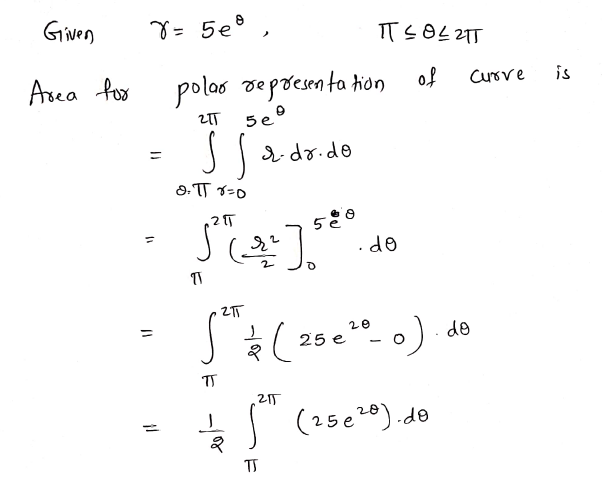 Given r = 5e^θ , π ≤ θ ≤ 2π
Area for polar representation of curve is
= ∫_{θ=π}^{2π} ∫_{r=0}^{5e^θ} r·dr·dθ
= ∫_π^{2π} (r²/2]_0^{5e^θ} · dθ
= ∫_π^{2π} 1/2 (25e^{2θ} - 0) · dθ
= 1/2 ∫_π^{2π} (25e^{2θ}) · dθ